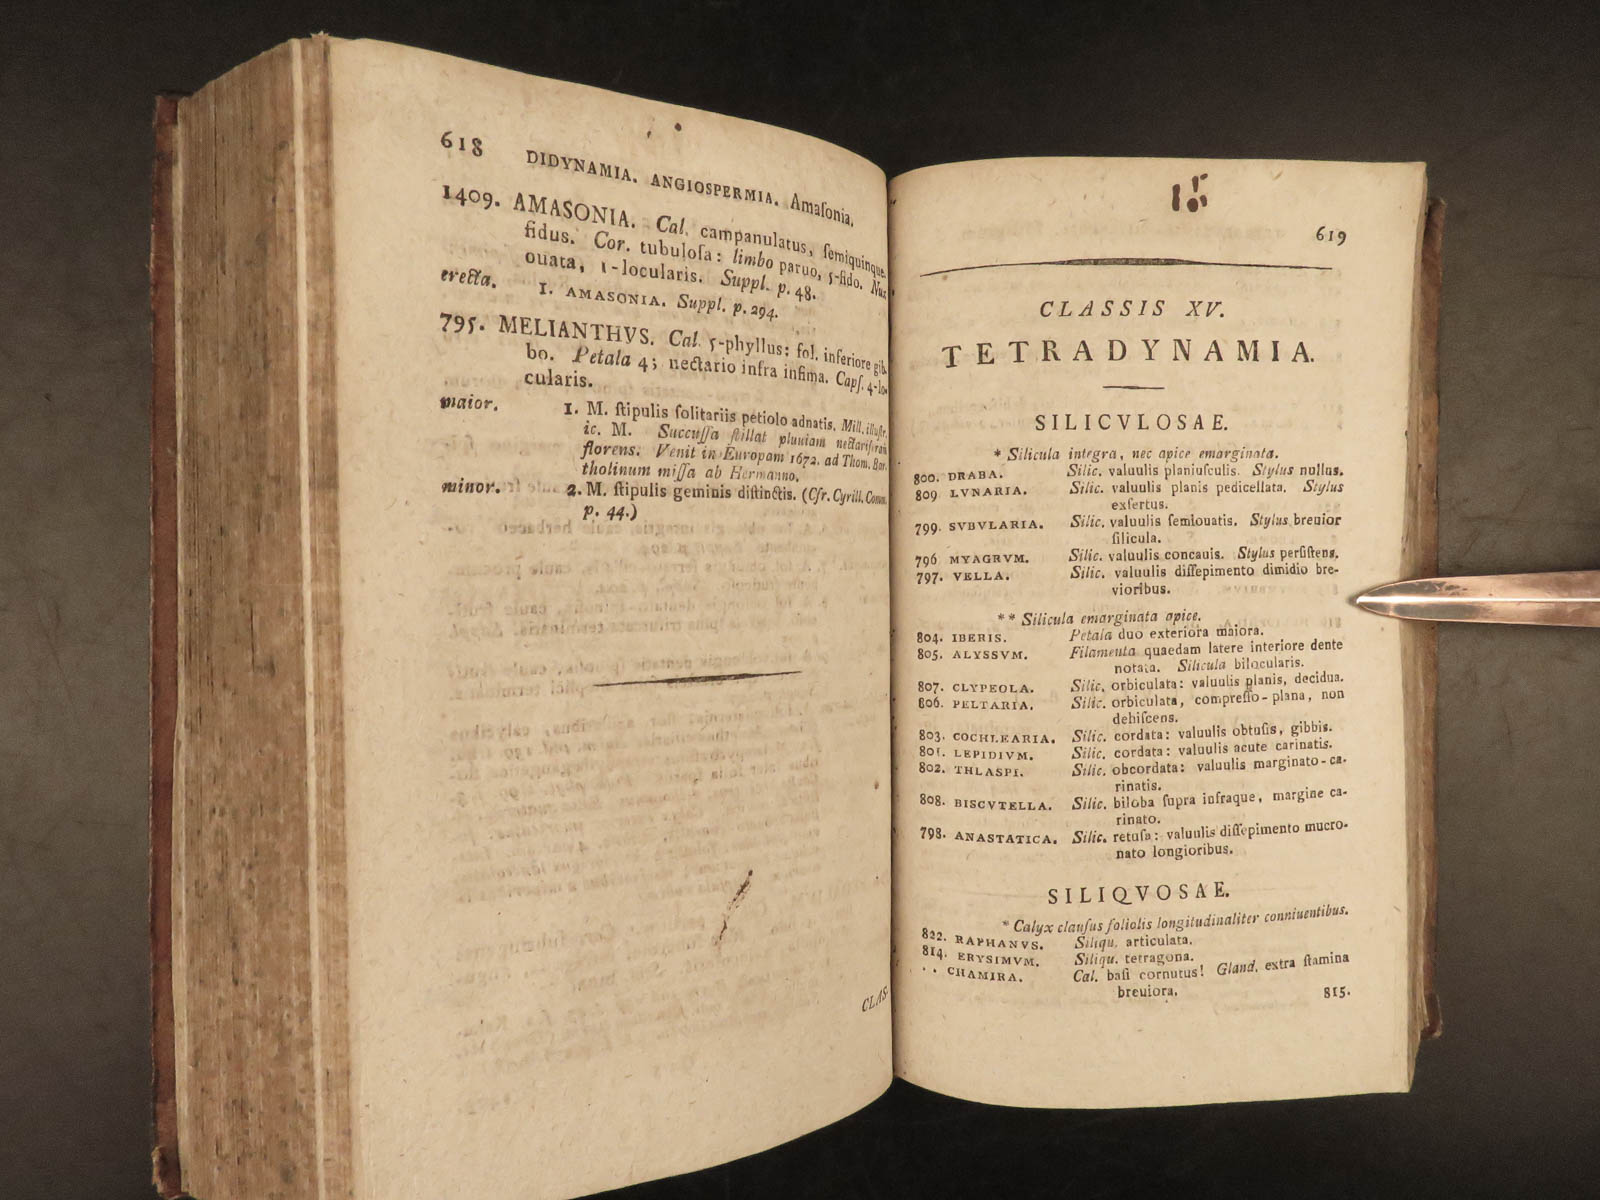 618 DIDYNAMIA. ANGIOSPERMIA. Amaſonia.
1409. AMASONIA. Cal. campanulatus, ſemiquinque-
fidus. Cor. tubuloſa: limbo paruo, 5-fido. Nux
ouata, 1-locularis. Suppl. p. 48.
erecta. 1. AMASONIA. Suppl. p. 294.
795. MELIANTHVS. Cal. 5-phyllus: fol. inferiore gib-
bo. Petala 4; nectario infra infima. Capſ. 4-lo-
cularis.
maior. 1. M. ſtipulis ſolitariis petiolo adnatis. Mill. illuſtr.
ic. M. Succuſſa ſtillat pluuiam nectariferam
florens. Venit in Europam 1672. ad Thom. Bar-
tholinum miſſa ab Hermanno.
minor. 2. M. ſtipulis geminis diſtinctis. (Cfr. Cyrill. Comm.
p. 44.)
CLAS-
15
619
CLASSIS XV.
TETRADYNAMIA.
SILICVLOSAE.
* Silicula integra, nec apice emarginata.
800. DRABA. Silic. valuulis planiuſculis. Stylus nullus.
809 LVNARIA. Silic. valuulis planis pedicellata. Stylus
exſertus.
799. SVBVLARIA. Silic. valuulis ſemiouatis. Stylus breuior
ſilicula.
796 MYAGRVM. Silic. valuulis concauis. Stylus perſiſtens.
797. VELLA. Silic. valuulis diſſepimento dimidio bre-
vioribus.
** Silicula emarginata apice.
804. IBERIS. Petala duo exteriora maiora.
805. ALYSSVM. Filamenta quaedam latere interiore dente
notata. Silicula bilocularis.
807. CLYPEOLA. Silic. orbiculata: valuulis planis, decidua.
806. PELTARIA. Silic. orbiculata, compreſſo-plana, non
dehiſcens.
803. COCHLEARIA. Silic. cordata: valuulis obtuſis, gibbis.
801. LEPIDIVM. Silic. cordata: valuulis acute carinatis.
802. THLASPI. Silic. obcordata: valuulis marginato-ca-
rinatis.
808. BISCVTELLA. Silic. biloba ſupra infraque, margine ca-
rinato.
798. ANASTATICA. Silic. retuſa: valuulis diſſepimento mucro-
nato longioribus.
SILIQVOSAE.
* Calyx clauſus foliolis longitudinaliter conniuentibus.
822. RAPHANVS. Siliqu. articulata.
814. ERYSIMVM. Siliqu. tetragona.
. . CHAMIRA. Cal. baſi cornutus! Gland. extra ſtamina
breuiora.
815.